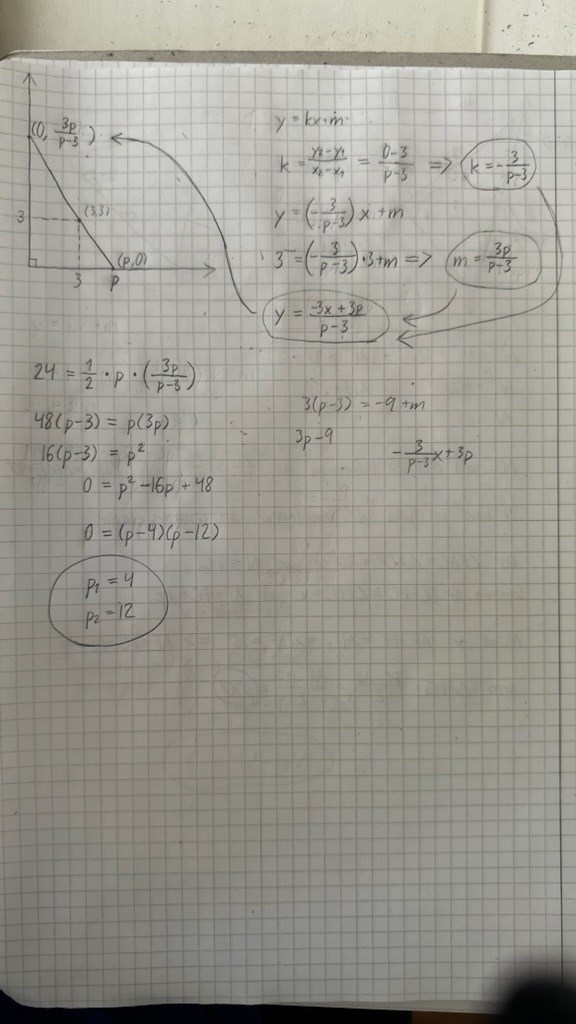 (0, 3p/(p-3))
(3,3)
3
(p,0)
3
p
y = kx+m
k = (y₂-y₁)/(x₂-x₁) = (0-3)/(p-3) => k = -3/(p-3)
y = (-3/(p-3)) x + m
3 = (-3/(p-3)) · 3 + m => m = 3p/(p-3)
y = (-3x+3p)/(p-3)
24 = 1/2 · p · (3p/(p-3))
48(p-3) = p(3p)
16(p-3) = p²
0 = p² - 16p + 48
0 = (p-4)(p-12)
p₁ = 4
p₂ = 12
3(p-3) = -9 + m
3p - 9
-3/(p-3) x + 3p